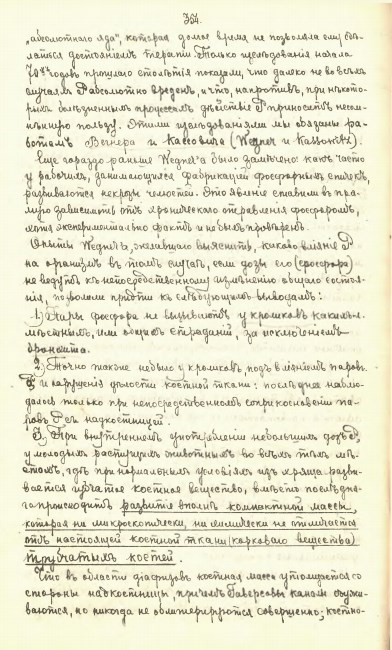 364.
„абсолютнаго яда", которая долгое время не позволяла ему сдѣ-
латься достояніемъ терапіи. Только изслѣдованія начала
70ыхъ годовъ прошлаго столѣтія показали, что далеко не во всѣхъ
случаяхъ P абсолютно вреденъ, и что, напротивъ, при нѣкото-
рыхъ болѣзненныхъ процессахъ дѣйствіе P приноситъ несом-
нѣнную пользу. Этими изслѣдованіями мы обязаны ра-
ботамъ Вегнера и Кассовица (Wegner и Kassowitz).
Еще гораздо раньше Wegner'а было замѣчено какъ часто
у рабочихъ, занимающихся фабрикаціей фосфорныхъ спичекъ,
развиваются некрозы челюстей. Это явленіе ставили въ пря-
мую зависимость отъ хроническаго отравленія фосфоромъ,
хотя экспериментально фактъ и не былъ провѣренъ.
Опыты Wegner'а, желавшаго выяснить, каково вліяніе P
на организмъ въ томъ случаѣ, если дозы его (фосфора)
не ведутъ къ непосредственному измѣненію общаго состоя-
нія, позволили придти къ слѣдующимъ выводамъ:
1) Пары фосфора не вызываютъ у кроликовъ какихъ-л.
мѣстныхъ, или общихъ страданій, за исключеніемъ
бронхита.
2. Точно также не было у кроликовъ, подъ вліяніемъ паровъ
P, и нарушенія цѣлости костной ткани: послѣднее наблю-
далось только при непосредственномъ соприкосновеніи па-
ровъ P съ надкостницей.
3. При внутреннемъ употребленіи небольшихъ дозъ P,
у молодыхъ растущихъ животныхъ во всѣхъ тѣхъ мѣ-
стахъ, гдѣ при нормальныхъ условіяхъ изъ хряща разви-
вается губчатое костное вещество, вмѣсто послѣдня-
го происходитъ развитіе вполнѣ компактной массы,
которая ни микроскопически, ни химически не отличается
отъ настоящей костной ткани (корковаго вещества)
трубчатыхъ костей.
Что въ области діафизовъ костная масса утолщается со
стороны надкостницы, причемъ Гаверсовы каналы сужи-
ваются, но никогда не облитерируются совершенно; костно-